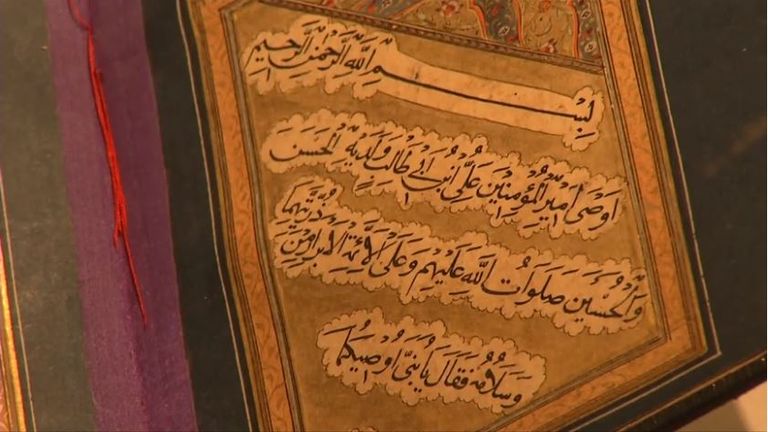 بِسْمِ اللَّهِ الرَّحْمٰنِ الرَّحِيمِ
اَوْصٰى اَمِيرُ الْمُؤْمِنِينَ عَلِيُّ ابْنُ اَبِي طَالِبٍ وَلَدَيْهِ الْحَسَنَ
وَالْحُسَيْنَ صَلَوَاتُ اللَّهِ عَلَيْهِمْ وَعَلَى الْاَئِمَّةِ الْاَبْرَارِ مِنْ ذُرِّيَّتِهِمَا
وَسَلَامُهُ فَقَالَ يَا بَنِيَّ اُوصِيكُمَا